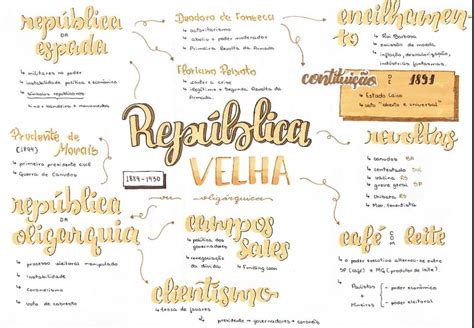 república
DA
espada
↳ militares no poder
↳ instabilidade política e econômica
↳ símbolos republicanos
hino + bandeira + monumentos
Deodoro da Fonseca
↳ autoritarismo
↳ aboliu o poder moderador
↳ Primeira Revolta da Armada
Floriano Peixoto
↳ legitimou a Segunda Revolta da Armada.
encilhamento
↳ Rui Barbosa
↳ emissão de moeda
↳ inflação, desvalorização, indústrias fantasmas.
constituição
DE
1891
↳ Estado Laico
↳ voto "aberto e universal"
Prudente de Morais
(1894)
↳ primeiro presidente civil
↳ Guerra de Canudos
República
VELHA
1889-1930
ou oligárquica
revoltas
↳ canudos BA
↳ contestado
↳ vacina RJ
↳ greve geral SP
↳ chibata RJ
↳ Mov. tenentista
república
DA
oligarquia
↳ processo eleitoral manipulado
↳ instabilidade
↳ coronelismo
↳ voto de cabresto
campos sales
↳ política dos governadores
↳ renegociação da dívida
↳ funding loan
clientismo
↳ troca de favores
↳ presidente → governadores → coronéis
café com leite
↳ o poder executivo alternava-se entre SP (café) e MG (produtor de leite).
↳ Paulistas + Mineiros
- poder econômico
- poder eleitoral